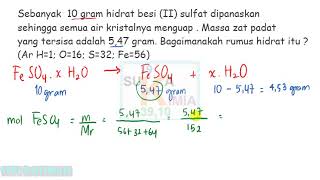 Sebanyak 10 gram hidrat besi (II) sulfat dipanaskan
sehingga semua air kristalnya menguap . Massa zat padat
yang tersisa adalah 5,47 gram. Bagaimanakah rumus hidrat itu ?
(Ar H=1; O=16; S=32; Fe=56)
FeSO4 . x H2O → FeSO4 + x H2O
10 gram 5,47 gram 10 - 5,47 = 4,53 gram
mol FeSO4 = m/Mr = 5,47/56+32+64 = 5,47/152 =